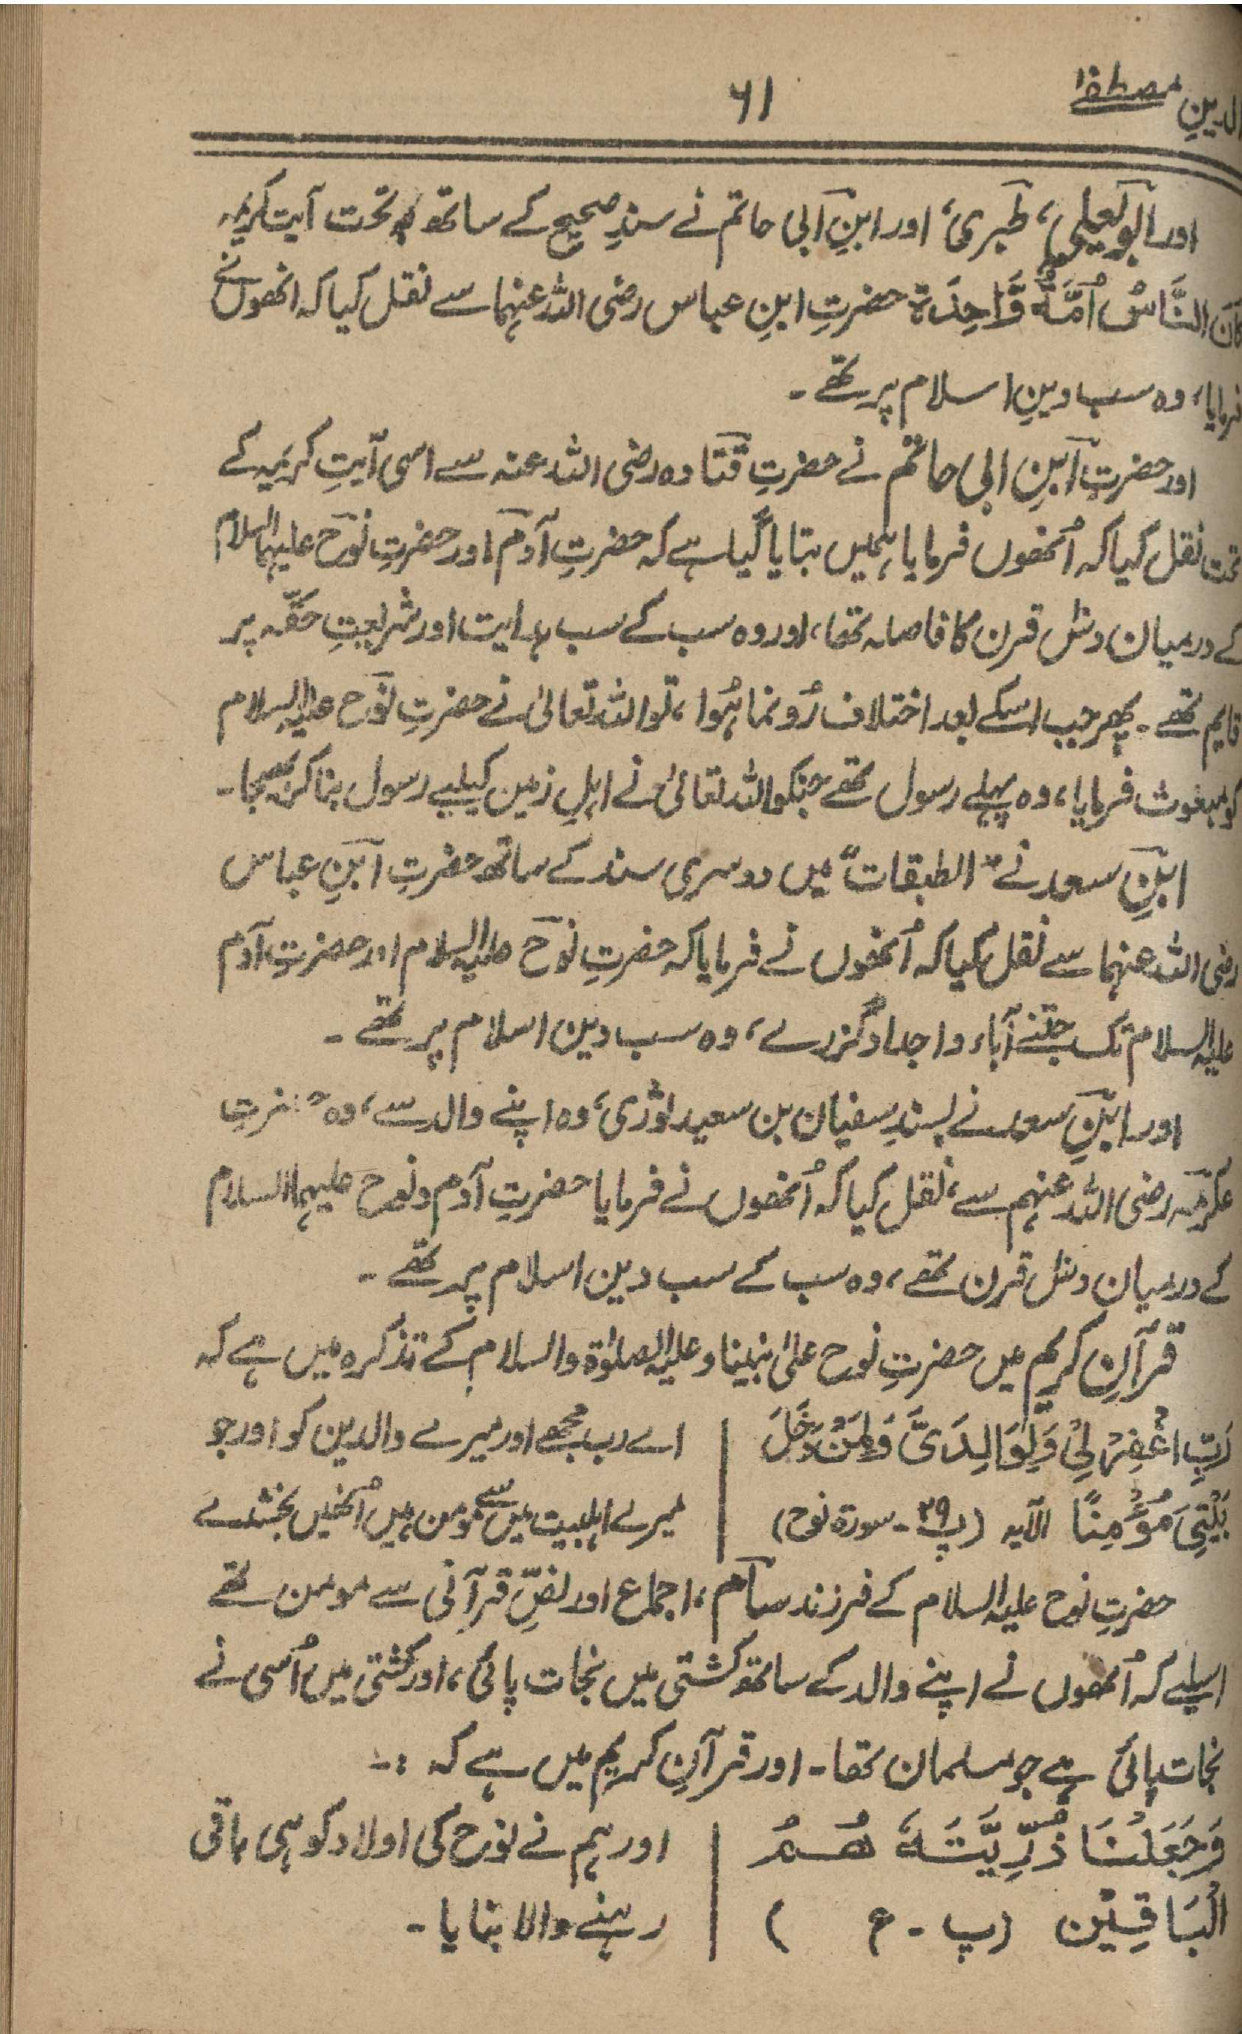 الدینِ مصطفےٰ
۶۱
اور ابو یعلی، طبری، اور ابنِ ابی حاتم نے سندِ صحیح کے ساتھ تحت آیت کریمہ
کَانَ النَّاسُ اُمَّةً وَّاحِدَة حضرتِ ابنِ عباس رضی اللہ عنہما سے نقل کیا کہ انھوں نے
فرمایا، وہ سب دینِ اسلام پر تھے ۔
اور حضرتِ ابنِ ابی حاتم نے حضرتِ قتادہ رضی اللہ عنہ سے اسی آیتِ کریمہ کے
تحت نقل کیا کہ اُنھوں فرمایا ہمیں بتایا گیا ہے کہ حضرتِ آدم اور حضرتِ نوح علیہما السلام
کے درمیان دنش قرن کا فاصلہ تھا، اور وہ سب کے سب ہدایت اور شریعتِ حقّہ پر
قایم تھے ۔ پھر جب اسکے بعد اختلاف رُونما ہُوا، تو اللہ تعالیٰ نے حضرتِ نوح علیہ السلام
کو مبعوث فرمایا، وہ پہلے رسول تھے جنکو اللہ تعالیٰ نے اہلِ زمین کیلیے رسول بنا کر بھیجا۔
ابنِ سعد نے "الطبقات" میں دوسری سند کے ساتھ حضرتِ ابنِ عباس
رضی اللہ عنہما سے نقل کیا کہ اُنھوں نے فرمایا کہ حضرتِ نوح علیہ السلام اور حضرتِ آدم
علیہ السلام تک جتنے آباء و اجداد گزرے، وہ سب دین اسلام پر تھے ۔
اور ابنِ سعد نے بسندِ سفیان بن سعید ثوری، وہ اپنے والد سے، وہ حضرتِ
عکرمہ رضی اللہ عنہم سے، نقل کیا کہ اُنھوں نے فرمایا حضرتِ آدم و نوح علیہما السلام
کے درمیان دنش قرن تھے، وہ سب کے سب دین اسلام پر تھے ۔
قرآنِ کریم میں حضرتِ نوح علیٰ نبینا و علیہ الصلوٰۃ والسلام کے تذکرہ میں ہے کہ
رَبِّ اغْفِرْ لِیْ وَلِوَالِدَیَّ وَلِمَنْ دَخَلَ | اے رب مجھے اور میرے والدین کو اور جو
بَیْتِیَ مُؤْمِنًا الآیہ (پ ۲۹ ۔ سورۃ نوح) | میرے اہلبیت میں سے مومن ہیں اُنھیں بخشدے
حضرتِ نوح علیہ السلام کے فرزند سام، اجماع اور نصِّ قرآنی سے مومن تھے
اسلیے کہ اُنھوں نے اپنے والد کے ساتھ کشتی میں نجات پائی، اور کشتی میں اُسی نے
نجات پائی ہے جو مسلمان تھا۔ اور قرآنِ کریم میں ہے کہ :۔
وَجَعَلْنَا ذُرِّیَّتَهٗ هُمُ | اور ہم نے نوح کی اولاد کو ہی باقی
الْبَاقِیْن (پ ۔ ع ) | رہنے والا بنایا ۔